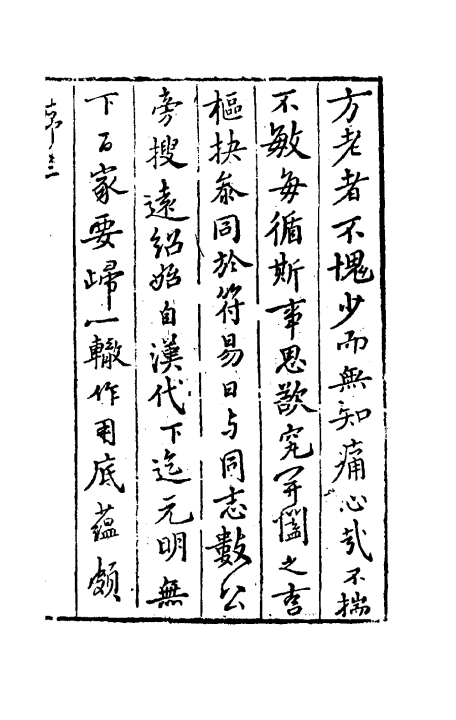 方老者不愧少而無知痛心哉不揣
不敏每循斯事思欲究開闔之言
樞抉叅同於符易日与同志數公
旁搜遠紹始自漢代下迄元明無
下百家要歸一轍作用底蘊頗
序三